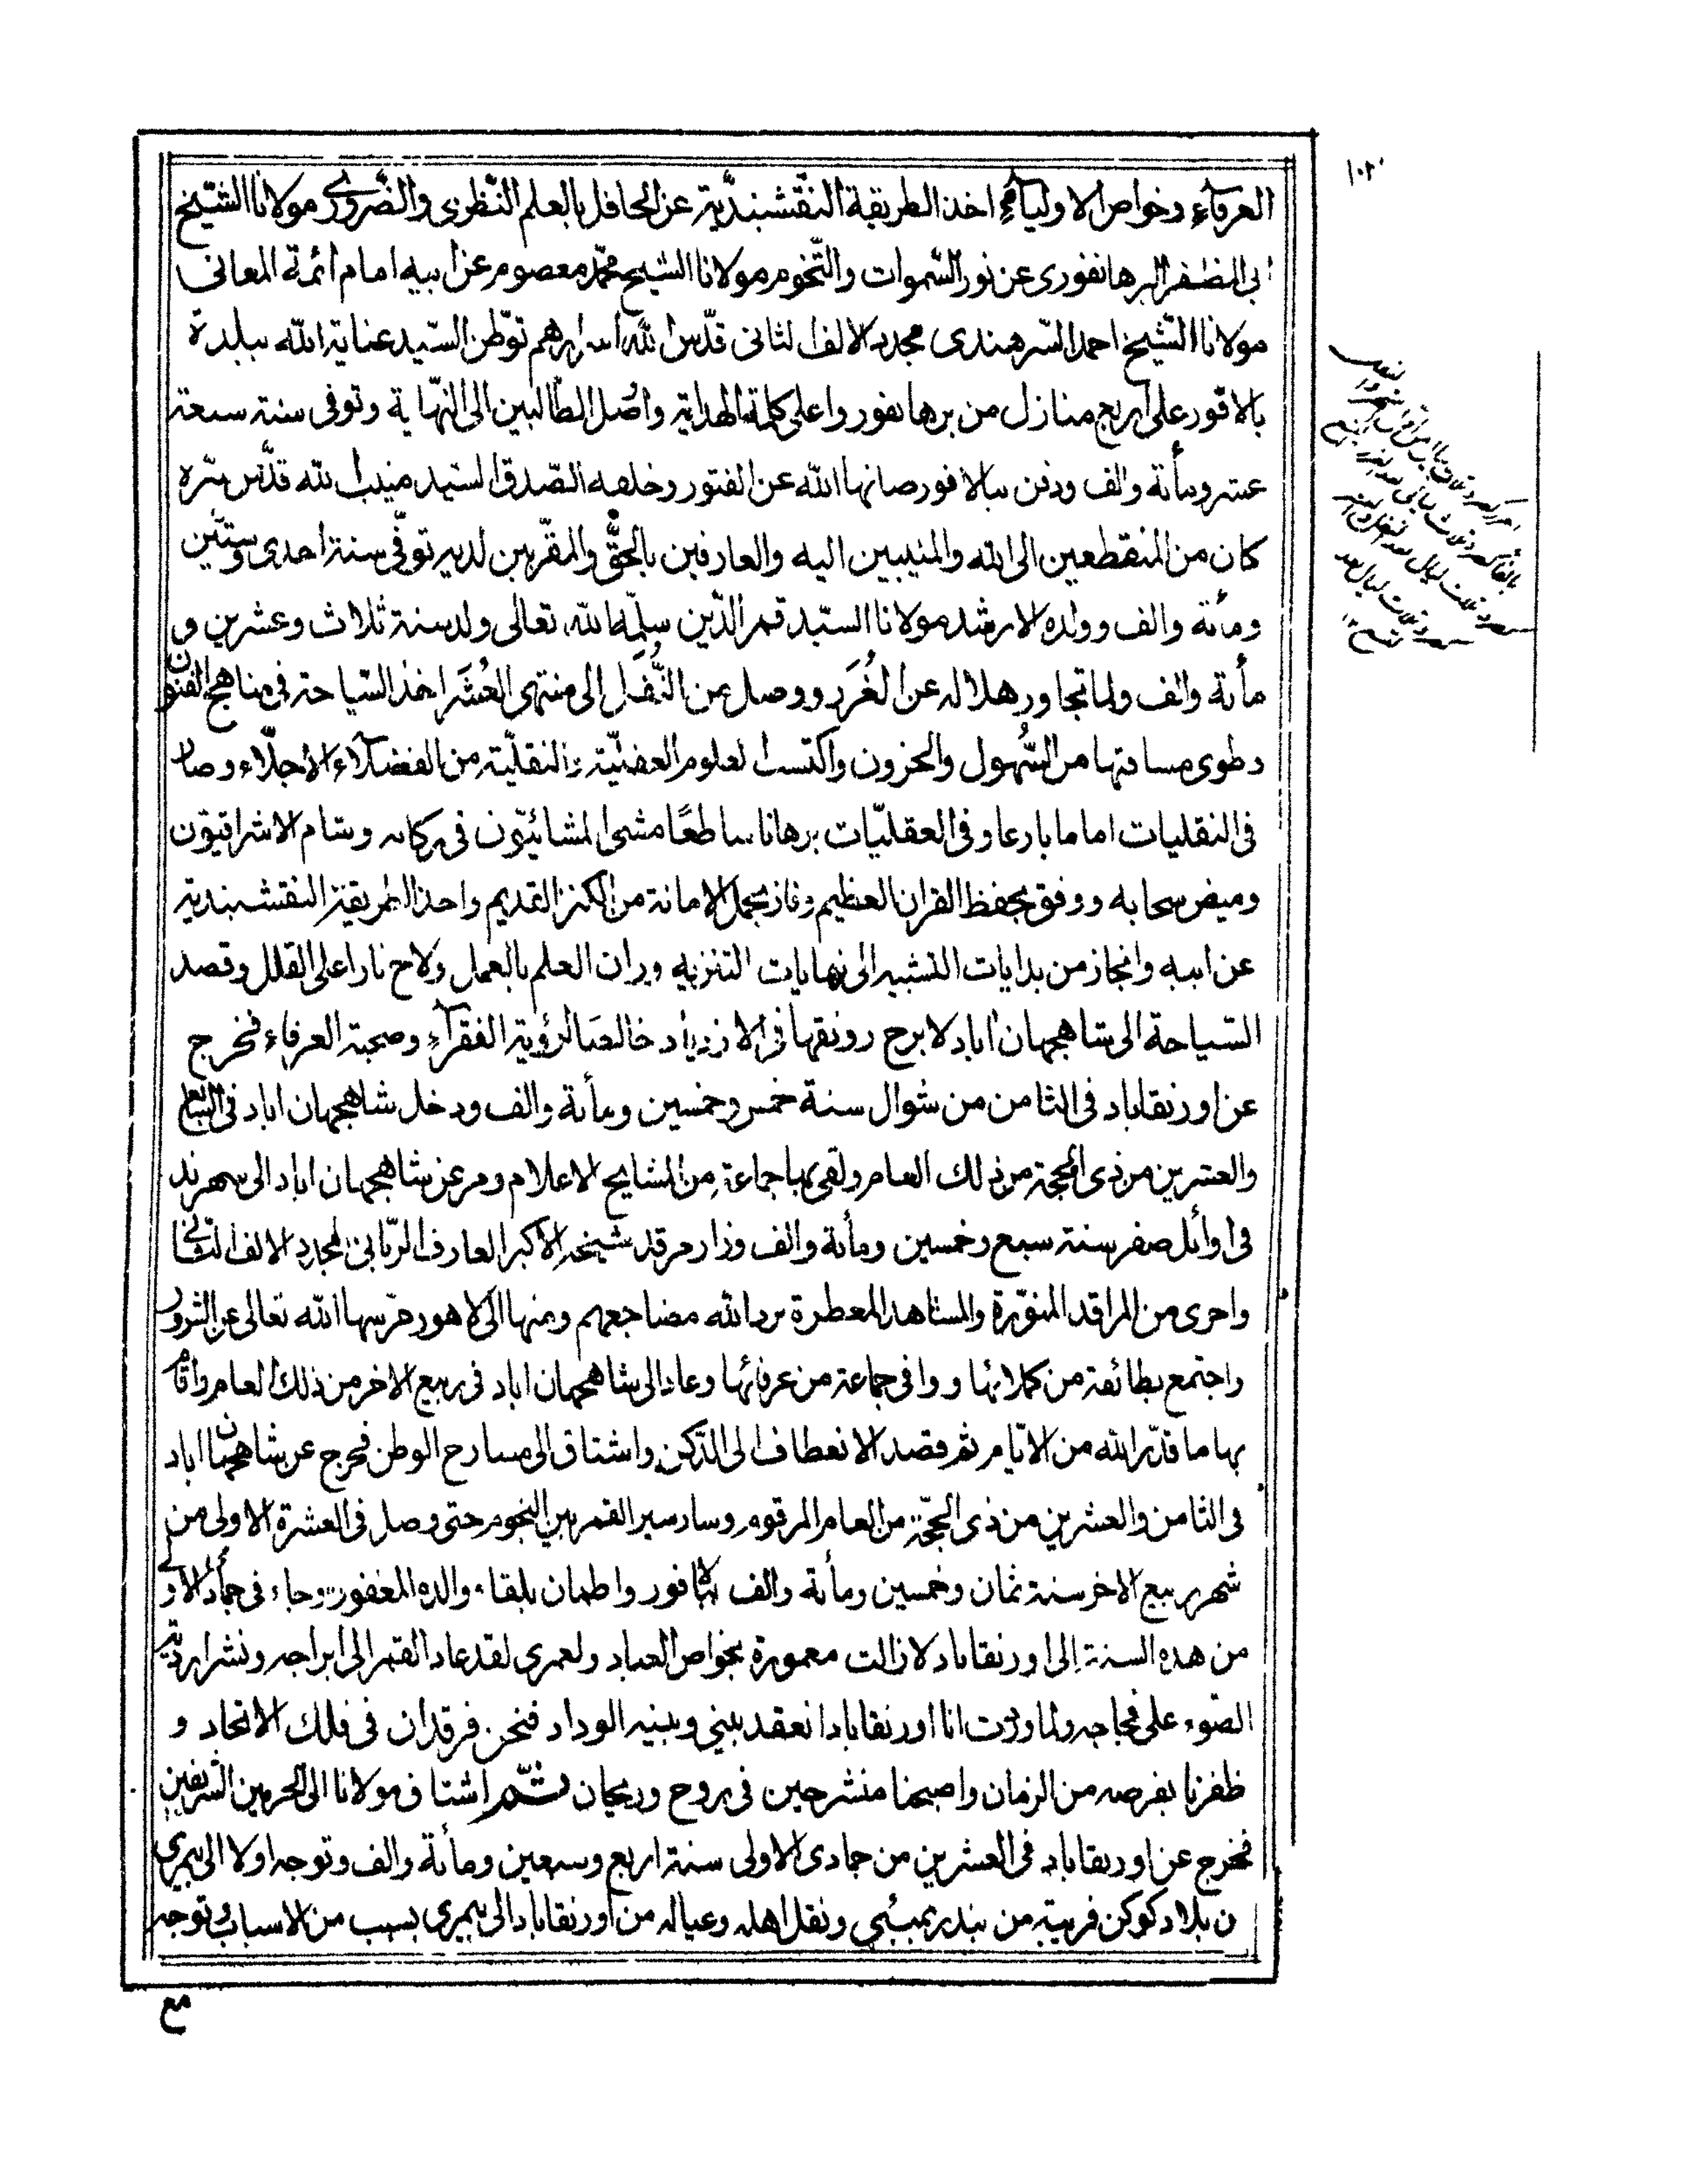 العرفآء وخواص الاوليآء اخذ الطريقة النّقشبنديّة عن الحافل بالعلم النّظرى والضّرورى مولانا الشّيخ
ابى المظفر البرهانفورى عن نور السّموات والتّخوم مولانا الشيخ محمّد معصوم عن ابيه امام ائمة المعانى
مولانا الشّيخ احمد السّرهندى مجدد الالف الثانى قدّس الله اسرارهم توّطن السّيد عناية الله ببلدة
بالافور على اربع منازل من برهانفور واعلى كلمة الهداية واوصل الطّالبين الى النّهاية وتوفى سنة سبعة
عشر ومأة والف ودفن ببالافور صانها الله عن الفتور وخلفه الصّدق السّيد منيب الله قدّس سّره
كان من المنقطعين الى الله والمنيبين اليه والعارفين بالحقّ والمقرّبين لديه توفّى سنة احدى وستّين
ومأة والف وولده الارشد مولانا السيّد قمر الدّين سلّمه الله تعالى ولد سنة ثلاث وعشرين و
مأة والف ولما تجاوز هلاله عن الغُرَر ووصل من النُّفَل الى منتهى العُشَر اخذ السّياحة فى مناهج الفنون
وطوى مسافتها من السُّهول والحزون واكتسب العلوم العقليّة والنقليّة من الفضلآء الأجلّاء وصار
فى النقليات اماما بارعا وفى العقليّات برهانا ساطعًا مشى المشائيّون فى ركابه وشام الاشراقيون
وميض سحابه ووفق بحفظ القران العظيم وفاز بحمل الامانة من الكنز القديم واخذ الطريقة النقشبندية
عن ابيه وانجاز من بدايات التشبيه الى نهايات التنزيه وزان العلم بالعمل ولاح نارا على القلل وقصد
السّياحة الى شاهجهان اباد لا برح رونقها فى الازدياد خالصًا لرؤية الفقرآء وصحبة العرفاء فخرج
عن اورنقاباد فى الثامن من شوال سنة خمس وخمسين ومأة والف ودخل شاهجهان اباد فى السّابع
والعشرين من ذى الحجّة من ذلك العام ولقى بها جماعة من المشايخ الاعلام ومر عن شاهجهان اباد الى سهرند
فى اوائل صفر سنة سبع وخمسين ومأة والف وزار مرقد شيخه الاكبر العارف الرّبانى المجدد الالف الثانى
واخرى من المراقد المنوّرة والمشاهد المعطرة برد الله مضاجعهم ومنها الى لاهور حرّسها الله تعالى عن الشرور
واجتمع بطائفة من كملائها ووافى جماعة من عرفائها وعاد الى شاهجهان اباد فى ربيع الاخر من ذلك العام واقام
بها ما قدّر الله من الايّام ثم قصد الانعطاف الى الدّكن واشتاق الى مسارح الوطن فخرج عن شاهجهان اباد
فى الثامن والعشرين من ذى الحجّة من العام المرقوم وسار سير القمر بين النجوم حتى وصل فى العشرة الاولى من
شهر ربيع الاخر سنة ثمان وخمسين ومأة والف بالافور واطمان بلقاء والده المغفور وجاء فى جمادى الاولى
من هذه السنة الى اورنقاباد لا زالت معمورة بخواص العباد ولعمرى لقد عاد القمر الى ابراجه ونشر اردية
الضوء على فجاجه ولما وردت انا اورنقاباد انعقد بينى وبينه الوداد فنحن فرقدان فى فلك الاتحاد و
ظفرنا بفرصه من الزمان واصبحنا منشرحين فى روح وريحان ثمّ اشتاق مولانا الى الحرمين الشريفين
فخرج عن اورنقاباد فى العشرين من جمادى الاولى سنة اربع وسبعين ومأة والف وتوجه اولا الى بيمرى
من بلاد كوكن قريبة من بندر بمبئى ونقل اهله وعياله من اورنقاباد الى بيمرى بسبب من الاسباب وتوجه
مع